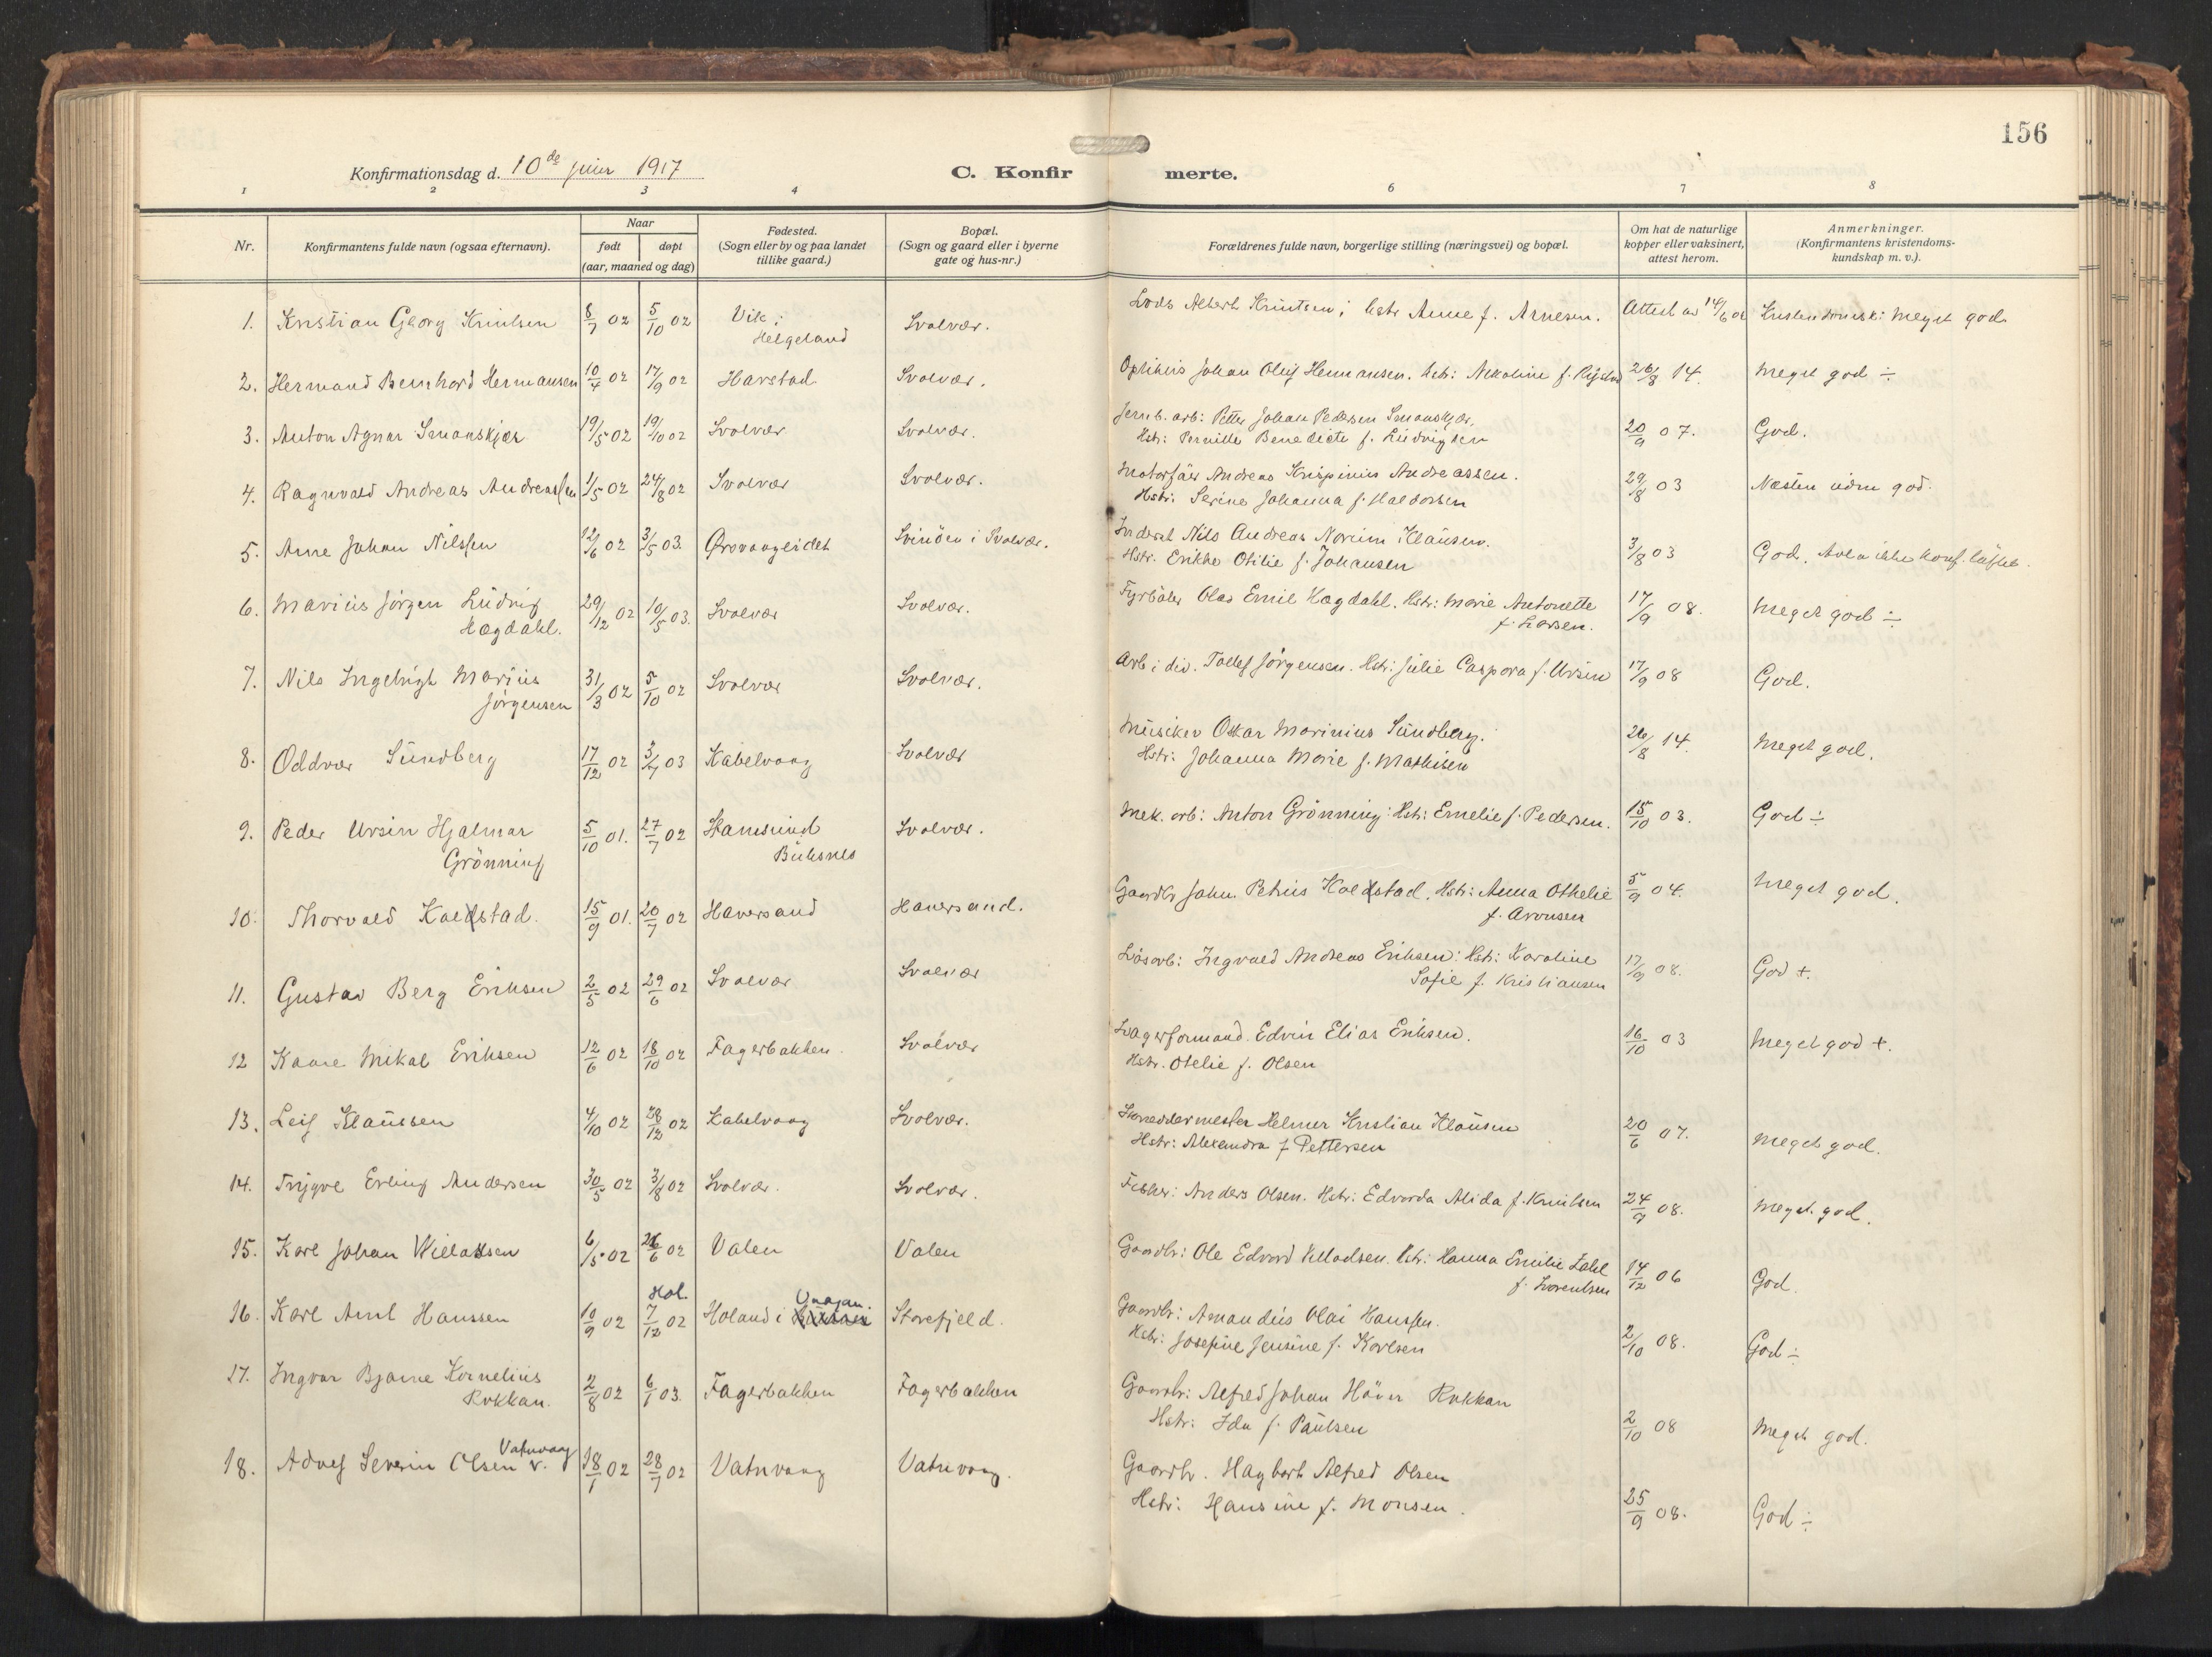 156
Konfirmationsdag d. 10de juni 1917
C. Konfirmerte.
1 2 3 4 6 7 8
Nr.
Konfirmantens fulde navn (ogsaa efternavn).
Naar
født døpt
(aar, maaned og dag)
Fødested.
(Sogn eller by og paa landet
tillike gaard.)
Bopæl.
(Sogn og gaard eller i byerne
gate og hus-nr.)
Forældrenes fulde navn, borgerlige stilling (næringsvei) og bopæl.
Om hat de naturlige
kopper eller vaksinert,
attest herom.
Anmerkninger.
(Konfirmantens kristendoms-
kundskap m. v.).
1. Kristian Georg Knutsen 8/7 02 5/10 02 Vik i Helgeland Svolvær. Lods Albert Knutsen; hstr Anne f. Arnesen. Attest av 14/6 Kristendomsk: Meget god
2. Hermand Bernhard Hermansen 10/4 02 17/9 02 Harstad Svolvær. Johan Oluf Hermansen. hstr: Nikoline f. 26/8 14. Meget god ÷
3. Anton Agnar Smaaskjær 19/5 02 19/10 02 Svolvær Svolvær. Jernb. arb: Petter Johan Pedersen Smaaskjær.
Hstr: Pernille Benedicte f. Ludvigsen 20/9 07. God.
4. Ragnvald Andreas Andreassen 1/5 02 24/8 02 Svolvær Svolvær. Andreas Krispinus Andreassen.
Hstr: Serine Johanna f. Haldorsen 29/8 03 Næsten god.
5. Arne Johan Nilssen 12/6 02 3/5 03. Ørsvaageidet Svinöen i Svolvær. Inderst Nils Andreas Norum Klausen.
Hstr. Erikke Otilie f. Johansen 3/8 03 God. Avla ikke konf. löftet.
6. Marius Jörgen Ludvig
Hægdahl. 29/12 02 10/5 03. Svolvær Svolvær. Fyrböter Olas Emil Hægdahl. Hstr: Marie Antonette
f. Larsen. 17/9 08. Meget god ÷
7. Nils Ingebrigt Marius
Jörgensen 31/3 02 5/10 02 Svolvær Svolvær. Arb i div. Tollef Jörgensen. Hstr: Julie Caspara f. Ursin 17/9 08 God.
8. Oddvar Sundberg 17/12 02 3/7 03 Kabelvaag Svolvær Musiker Oskar Marinius Sundberg.
Hstr: Johanna Marie f. Mathisen 26/8 14. Meget god.
9. Peder Ursin Hjalmar
Grönning 5/10 01. 27/7 02 Stamsund
Buksnes Svolvær. Mek. arb: Anton Grönning: Hstr: Emelie f. Pedersen. 15/10 03. God ÷
10. Thorvald Kalstad. 15/9 01. 20/7 02 Haversand Haversand. Gaardbr Johan Petrus Kalstad. Hstr: Anna Othelie
f. Aronsen 5/9 04. Meget god.
11. Gustav Berg Eriksen 2/5 02 29/6 02 Svolvær Svolvær Lösarb: Ingvald Andreas Eriksen: Hstr: Karoline
Sofie f. Kristiansen 17/9 08. God +.
12 Kaare Mikal Eriksen 12/6 02 18/10 02 Fagerbakken. Svolvær Lagerformand. Edvin Elias Eriksen.
Hstr. Otelie f. Olsen 16/10 03 Meget god +.
13. Leif Klaussen 4/10 02 28/12 02 Kabelvaag Svolvær. Skræddermester Helmer Kristian Klausen
Hstr: Alexandra f Pettersen 20/6 07. Meget god.
14. Trygve Erling Andersen 30/5 02 3/8 02 Svolvær. Svolvær. Fisker: Anders Olsen. Hstr: Edvarda Alida f. Knutsen 24/9 08. Meget god.
15. Karl Johan Willassen 6/5 02 26/6 02 Valen Valen Gaardbr: Ole Edvard Willadsen. Hstr: Hanna Emilie Zahl
f. Lorentsen 14/12 06 God.
16. Karl Aml Hanssen 10/9 02 Hol. 7/12 02 Holand i Unnjem. Storefjeld. Gaardbr: Amandus Olai Hanssen.
Hstr: Josefine Jensine f. Karlsen 2/10 08. God ÷
17. Ingvar Bjarne Kornelius
Rokkan. 2/8 02 6/1 03. Fagerbakken Fagerbakken Gaardbr: Alfred Johan Höier Rokkan
Hstr: Ida f. Paulsen 2/10 08 Meget god.
18. Adolf Severin Olsen v. Vatnvaag 18/1 02 28/7 02 Vatnvaag Vatnvaag. Gaardbr. Hagbart Alfred Olsen
Hstr: Hansine f. Monsen. 25/9 08. God ÷